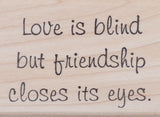 Love is blind
but friendship
closes its eyes.